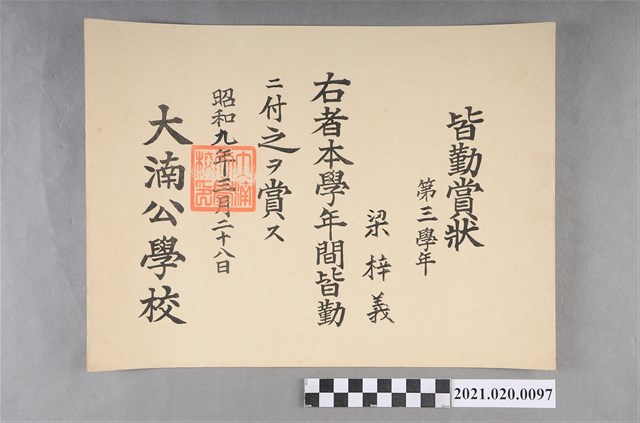 皆勤賞狀
第三學年
梁梓義
右者本學年間皆勤
ニ付之ヲ賞ス
昭和九年三月二十八日
大湳公學校
2021.020.0097